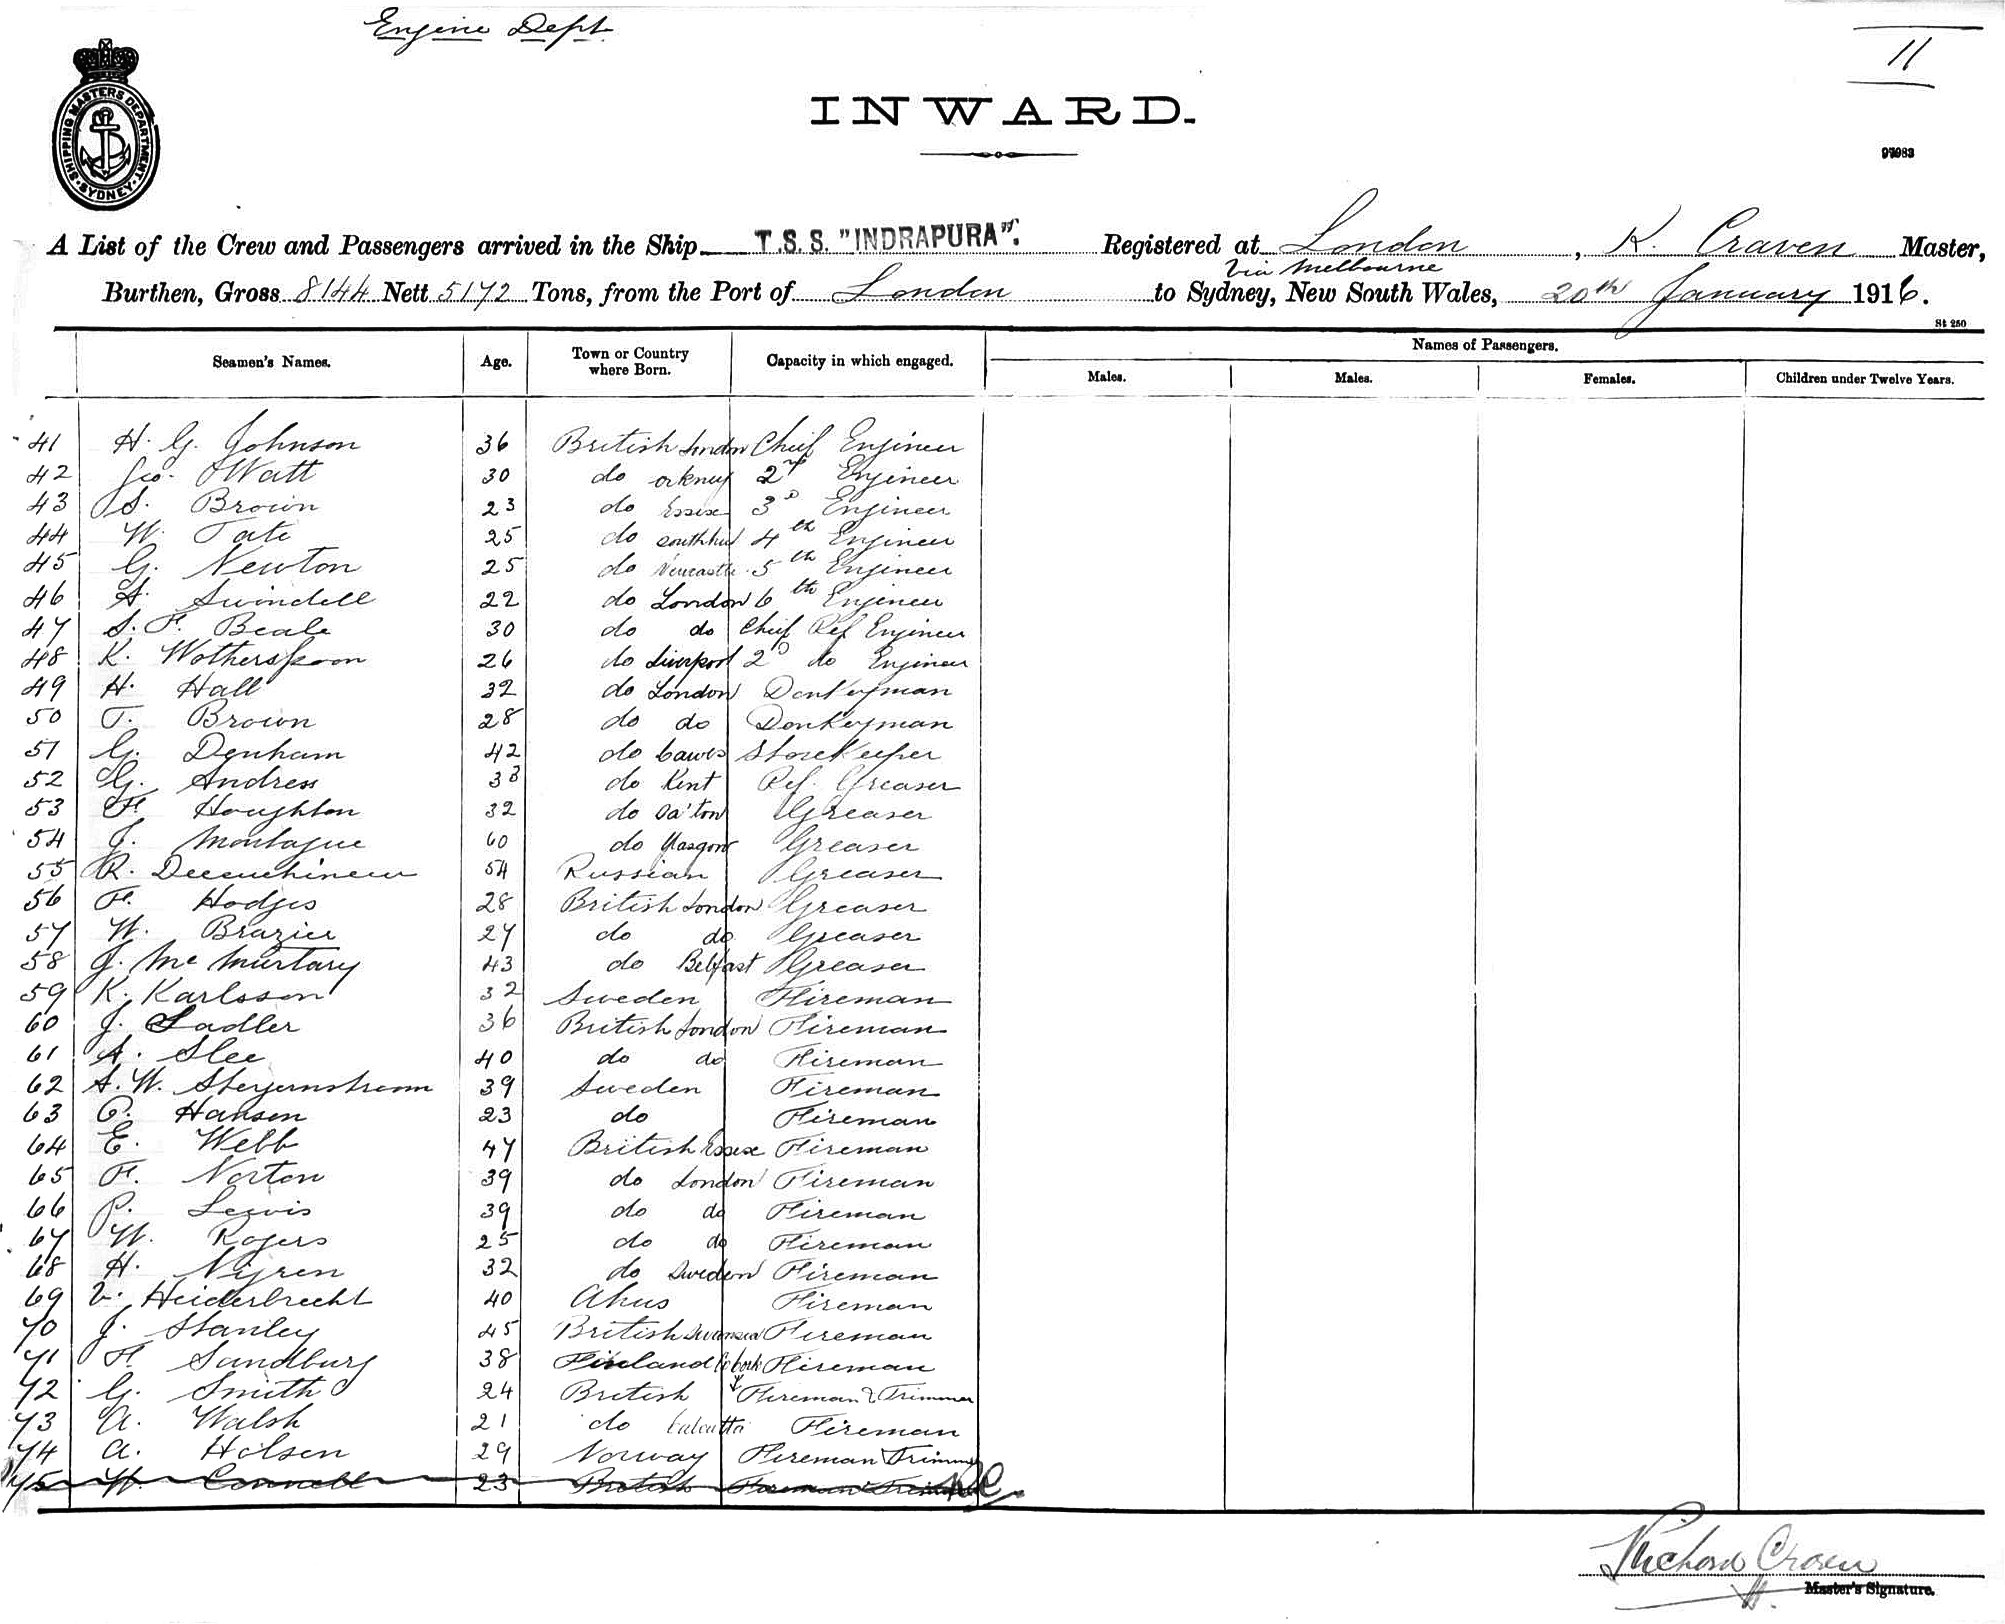 Engine Dept.
11
SHIPPING MASTERS DEPARTMENT
SYDNEY
INWARD.
A List of the Crew and Passengers arrived in the Ship T.S.S. "INDRAPURA". Registered at London, K. Craven Master,
via Melbourne
Burthen, Gross 8144 Nett 5172 Tons, from the Port of London to Sydney, New South Wales, 20th January 1916.
St 250
Seamen's Names. Age. Town or Country where Born. Capacity in which engaged. Names of Passengers.
Males. Males. Females. Children under Twelve Years.
41 H. G. Johnson 36 British London Chief Engineer
42 Geo. Watt 30 do orkney 2nd Engineer
43 S. Brown 23 do Essex 3D Engineer
44 W. Tate 25 do 4th Engineer
45 G. Newton 25 do Newcastle 5th Engineer
46 A. Swindell 22 do London 6th Engineer
47 S. F. Beale 30 do do Chief Ref Engineer
48 K. Wotherspoon 26 do Liverpool 2D do Engineer
49 H. Hall 32 do London Donkeyman
50 T. Brown 28 do do Donkeyman
51 G. Denham 42 do Storekeeper
52 G. Andress 38 do Kent Ref. Greaser
53 F. Houghton 32 do So'ton Greaser
54 J. Montague 60 do Glasgow Greaser
55 R. 54 Russian Greaser
56 F. Hodges 28 British London Greaser
57 W. Brazier 27 do do Greaser
58 J. Mc Murtary 43 do Belfast Greaser
59 K. Karlsson 32 Sweden Fireman
60 J. Sadler 36 British London Fireman
61 A. Slee 40 do do Fireman
62 A. W. 39 Sweden Fireman
63 C. Hansen 23 do Fireman
64 E. Webb 47 British Essex Fireman
65 F. Norton 39 do London Fireman
66 P. Lewis 39 do do Fireman
67 W. Rogers 25 do do Fireman
68 H. Nyren 32 do Sweden Fireman
69 V. Heiderbrecht 40 Ahus Fireman
70 J. Stanley 45 British Swansea Fireman
71 F. Sandburg 38 Finland Fireman
72 G. Smith 24 British Fireman & Trimmer
73 A. Walsh 21 do Calcutta Fireman
74 A. Holsen 29 Norway Fireman Trimmer
75 W. Connell 23 British Fireman Trimmer
Richard Craven
Master's Signature.